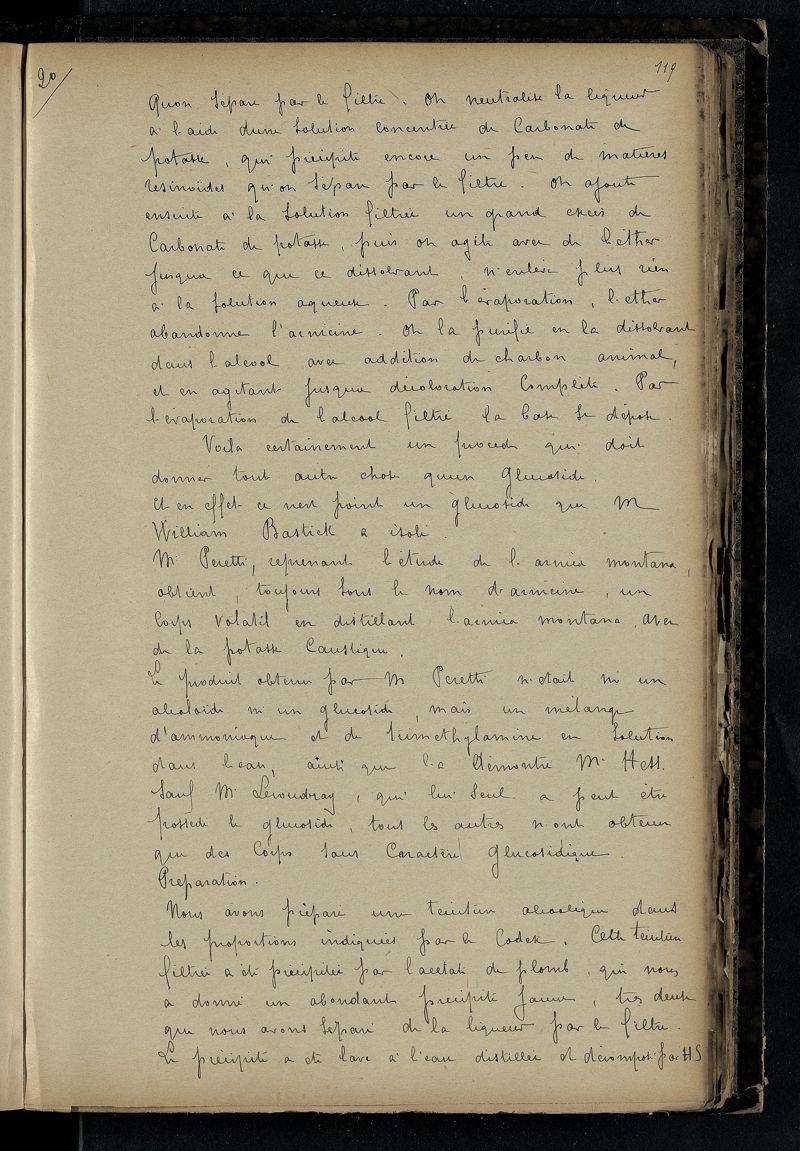 20
119
Qu'on sépare par le filtre. On neutralise la liqueur
à l'aide d'une solution concentrée de Carbonate de
potasse, qui précipite encore un peu de matières
résinoïdes qu'on sépare par le filtre. On ajoute
ensuite à la solution filtrée un grand excès de
Carbonate de potasse, puis on agite avec de l'éther
jusqu'à ce que ce dissolvant, n'enlève plus rien
à la solution aqueuse. Par l'évaporation, l'ether
abandonne l'arnicine. On la purifie en la dissolvant
dans l'alcool avec addition de charbon animal,
et en agitant jusqu'à décoloration Complète. Par
l'évaporation de l'alcool filtré la base se dépose.
Voilà certainement un procédé qui doit
donner tout autre chose qu'un Glucoside.
Et en effet ce n'est point un glucoside que M
William Bastick a isolé.
M. Peretti, reprenant l'étude de l'arnica montana,
obtient, toujours sous le nom d'arnicine, un
Corps volatil en distillant l'arnica montana avec
de la potasse Caustique.
Le produit obtenu par M Peretti n'etait ni un
alcaloïde ni un glucoside, mais un mélange
d'ammoniaque et de triméthylamine en solution
dans l'eau, ainsi que l'a démontré Mr Hess.
Sauf Mr Lerondray, qui lui seul a peut être
possédé le glucoside, tous les autres n'ont obtenu
que des Corps sans Caractère glucosidique.
Préparation.
Nous avons préparé une teinture alcoolique dans
les proportions indiquées par le Codex. Cette teinture
filtrée a été précipitée par l'acétate de plomb, qui nous
a donné un abondant précipité jaune, très dense
que nous avons séparé de la liqueur par le filtre.
Le précipité a été lavé à l'eau distillée et décomposé par HS